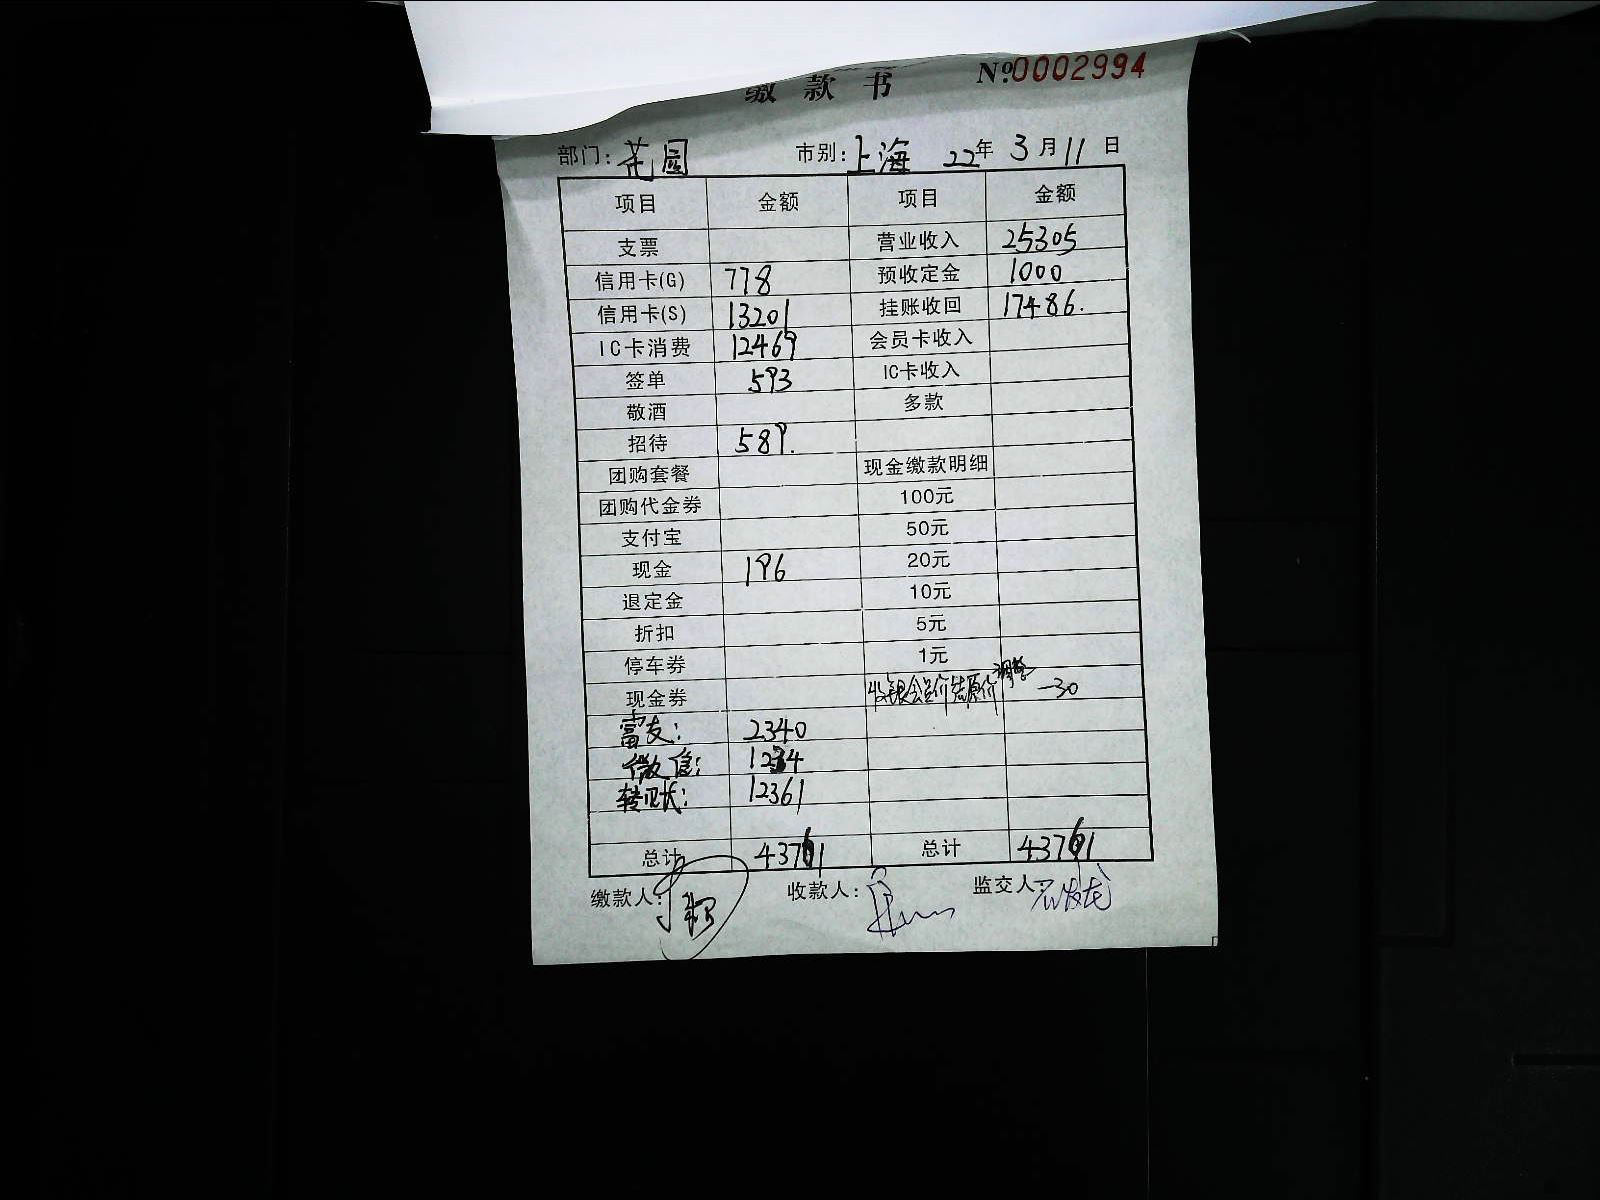 缴 款 书 Nº0002994
部门：花园 市别：上海 22年 3月11日
项目 金额 项目 金额
支票 营业收入 25305
信用卡(G) 778 预收定金 1000
信用卡(S) 13201 挂账收回 17486.
IC卡消费 12469 会员卡收入
签单 593 IC卡收入
敬酒 多款
招待 589.
团购套餐 现金缴款明细
团购代金券 100元
支付宝 50元
现金 196 20元
退定金 10元
折扣 5元
停车券 1元
现金券 收银会员价结原价调整 -30
富友： 2340
微信： 1234
转账： 12361
总计 43761 总计 43761
缴款人： 收款人： 监交人：